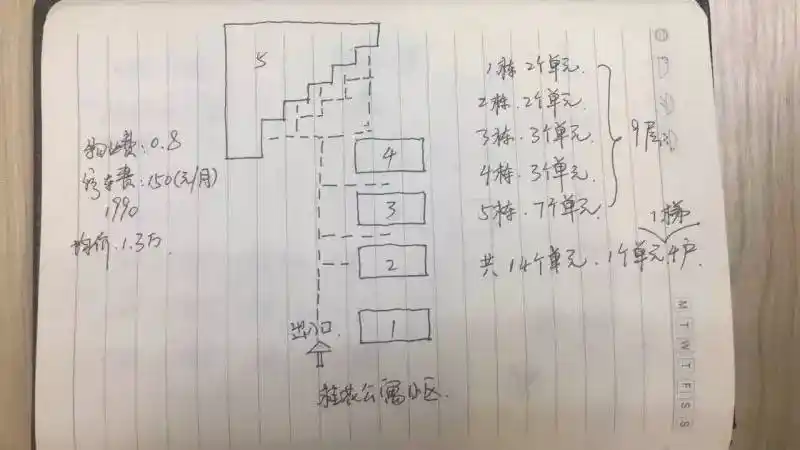 5
物业费:0.8
停车费:150(元/月)
1990
均价.1.3万
4
3
2
1
出入口
桂花公寓小区
1栋.2个单元.
2栋.2个单元.
3栋.3个单元.
4栋.3个单元.
5栋.7个单元.
9层
1梯
共14个单元.1个单元4户.
M
T
W
T
F
S
S